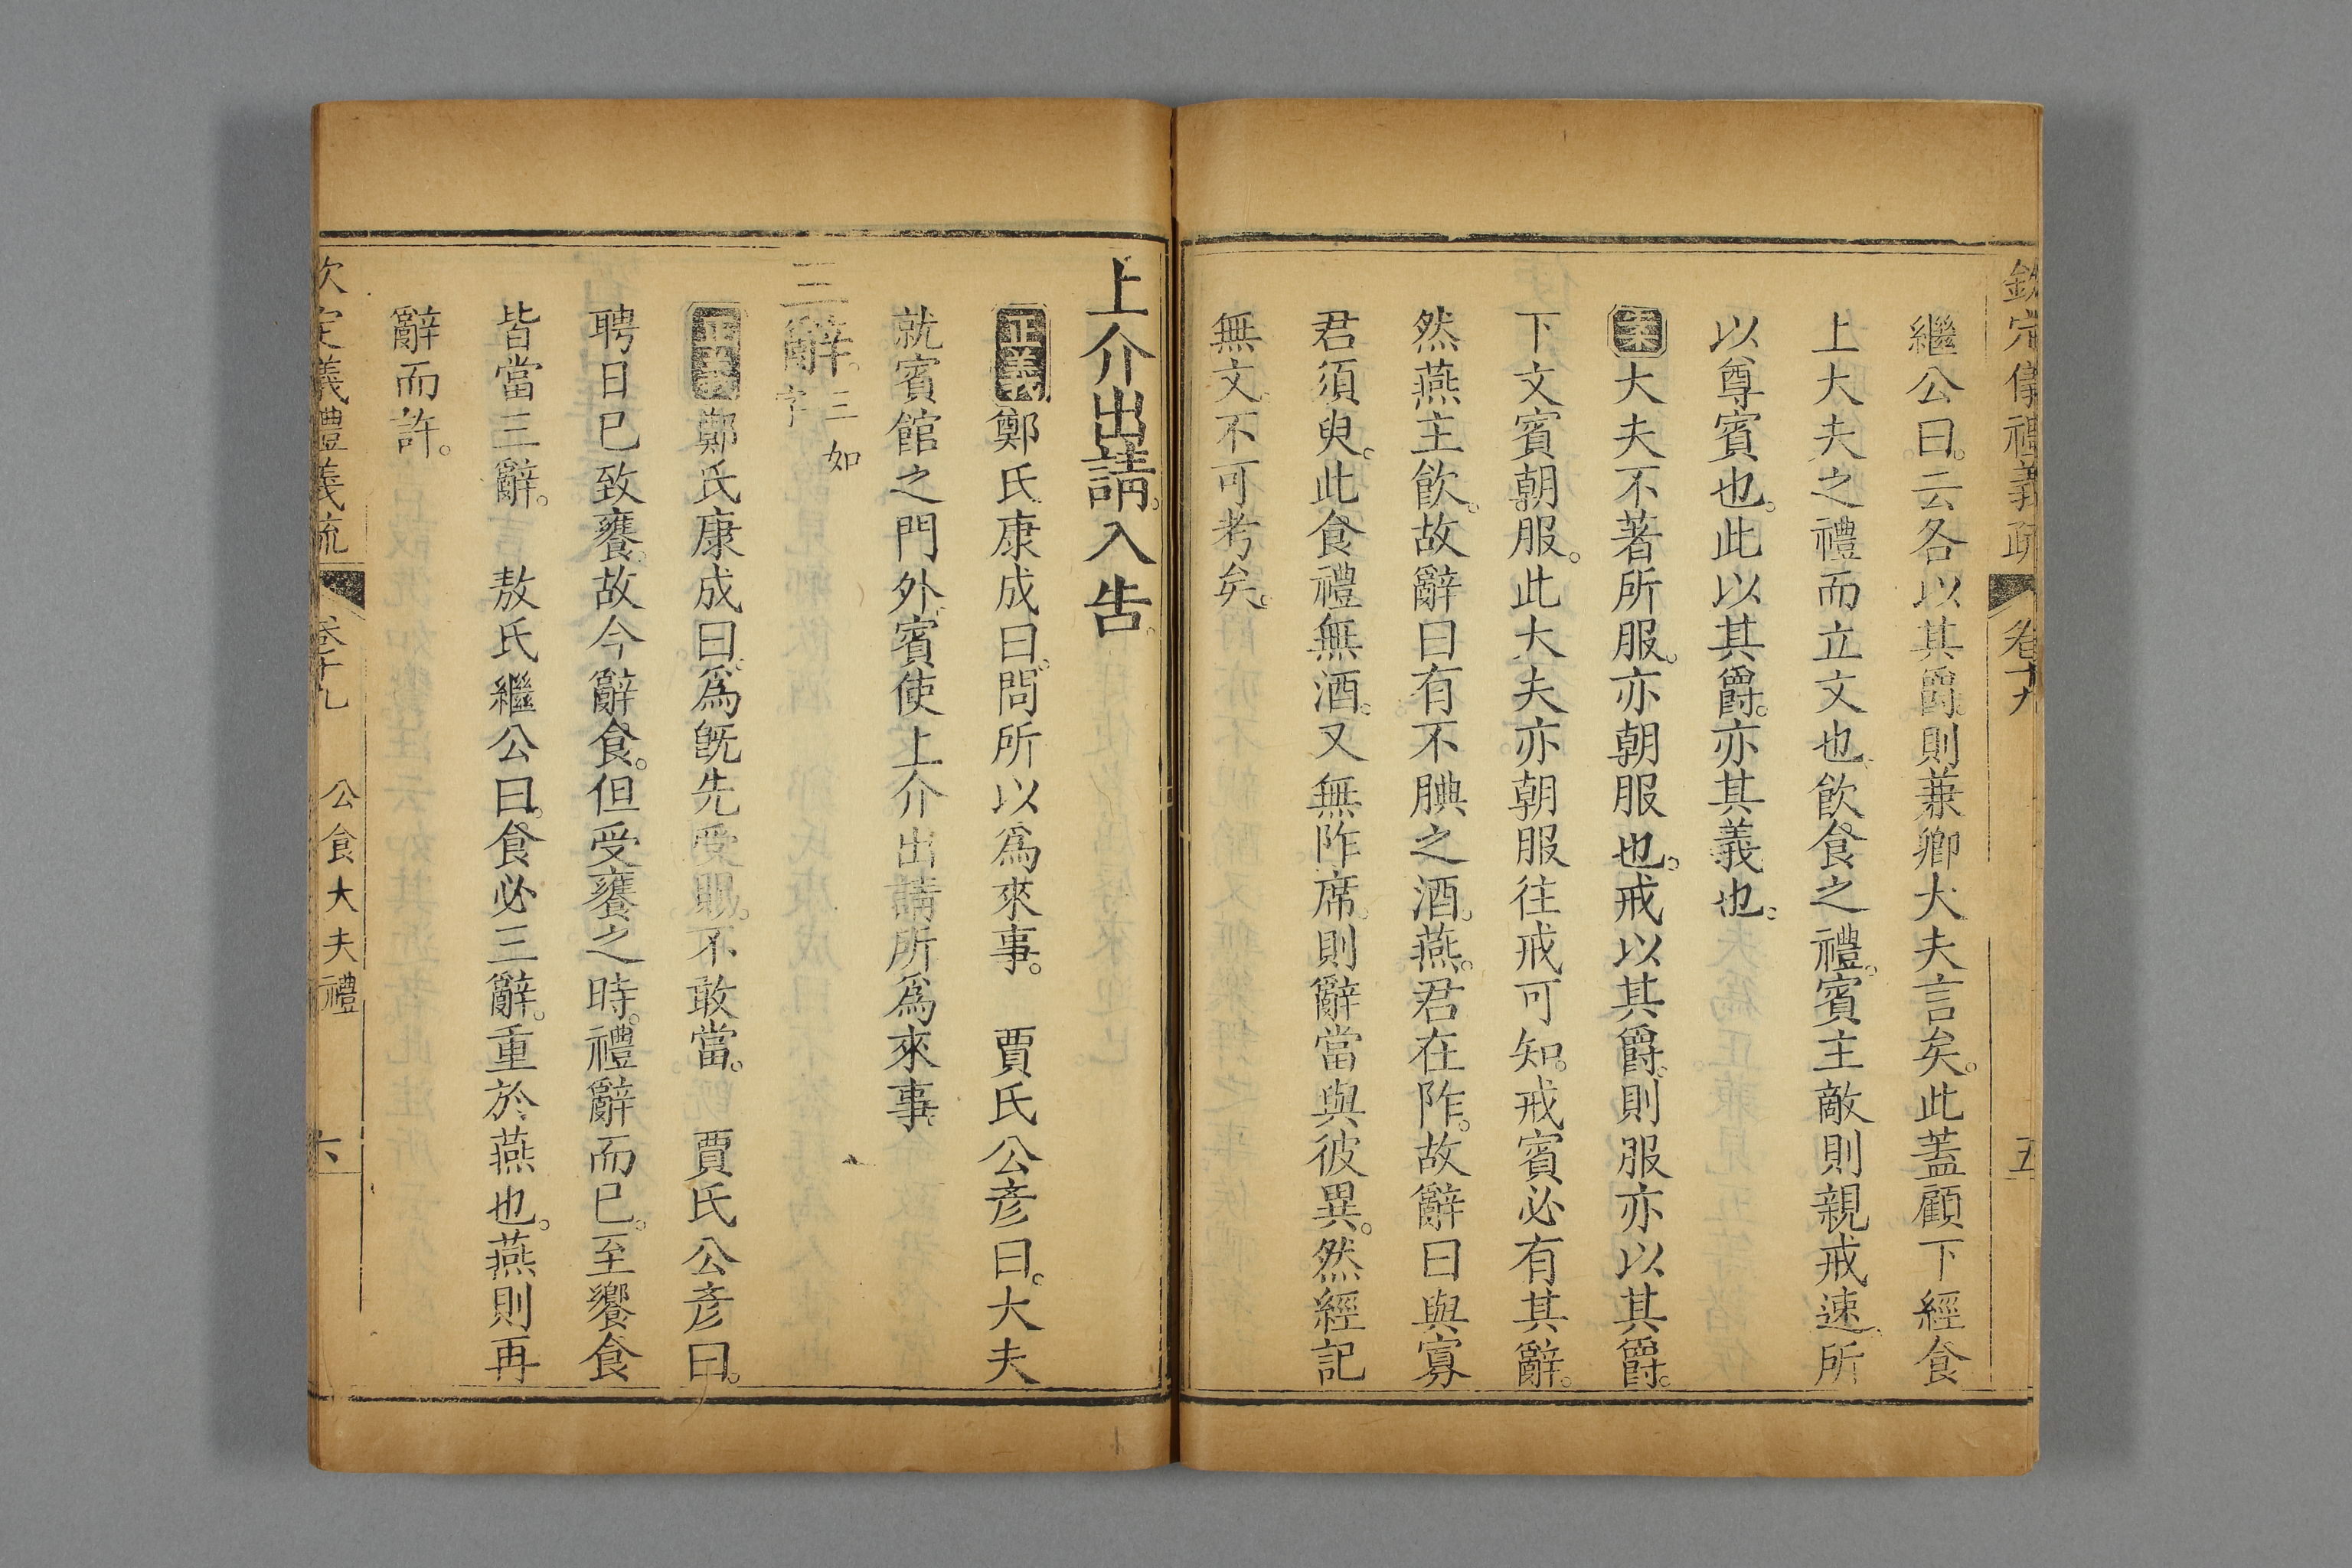 欽定儀禮義疏 卷十九 五
繼公曰。云各以其爵。則蒹卿大夫言矣。此蓋顧下經食
上大夫之禮而立文也。飲食之禮。賓主敵則親戒速。所
以尊賓也。此以其爵。亦其義也。
案大夫不著所服。亦朝服也。戒以其爵。則服亦以其爵。
下文賓朝服。此大夫亦朝服往戒可知。戒賓必有其辭。
然燕主飲。故辭曰有不腆之酒。燕。君在阼。故辭曰與寡
君須臾。此食禮無酒。又無阼席。則辭當與彼異。然經記
無文。不可考矣。
上介出請。入告。
正義鄭氏康成曰。問所以為來事。 賈氏公彥曰。大夫
就賓館之門外。賓使上介出請所為來事。
三辭。三如字
正義鄭氏康成曰。為旣先受賜。不敢當。 賈氏公彥曰。
聘日已致饔。故今辭食。但受饔之時。禮辭而已。至饗食
皆當三辭。 敖氏繼公曰。食必三辭。重於燕也。燕則再
辭而許。
欽定儀禮義疏 卷十九 公食大夫禮 六